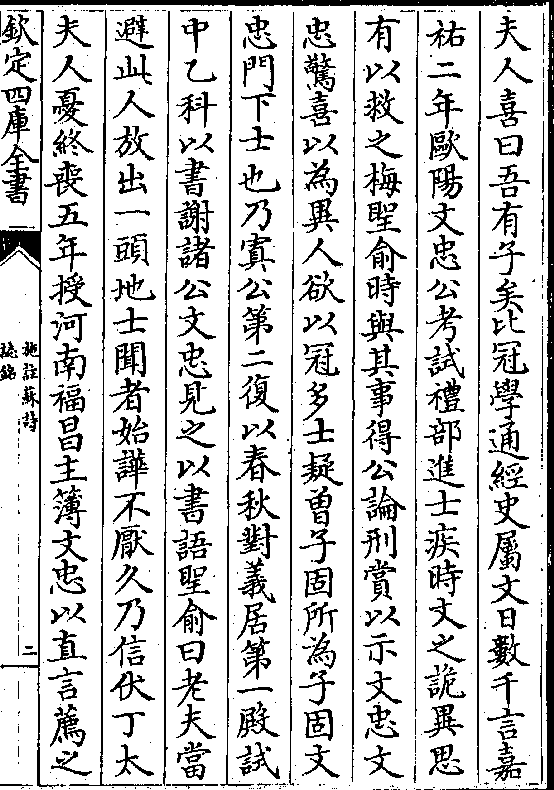 夫人喜曰吾有子矣比冠學通經史屬文日數千言嘉
祐二年歐陽文忠公考試禮部進士疾時文之詭異思
有以救之梅聖俞時與其事得公論刑賞以示文忠文
忠驚喜以為異人欲以冠多士疑曽子固所為子固文
忠門下士也乃寘公第二復以春秋對義居第一殿試
中乙科以書謝諸公文忠見之以書語聖俞曰老夫當
避此人放出一頭地士聞者始譁不厭久乃信伏丁太
夫人憂終喪五年授河南福昌主簿文忠以直言薦之
欽定四庫全書
施註蘇詩
誌銘
二